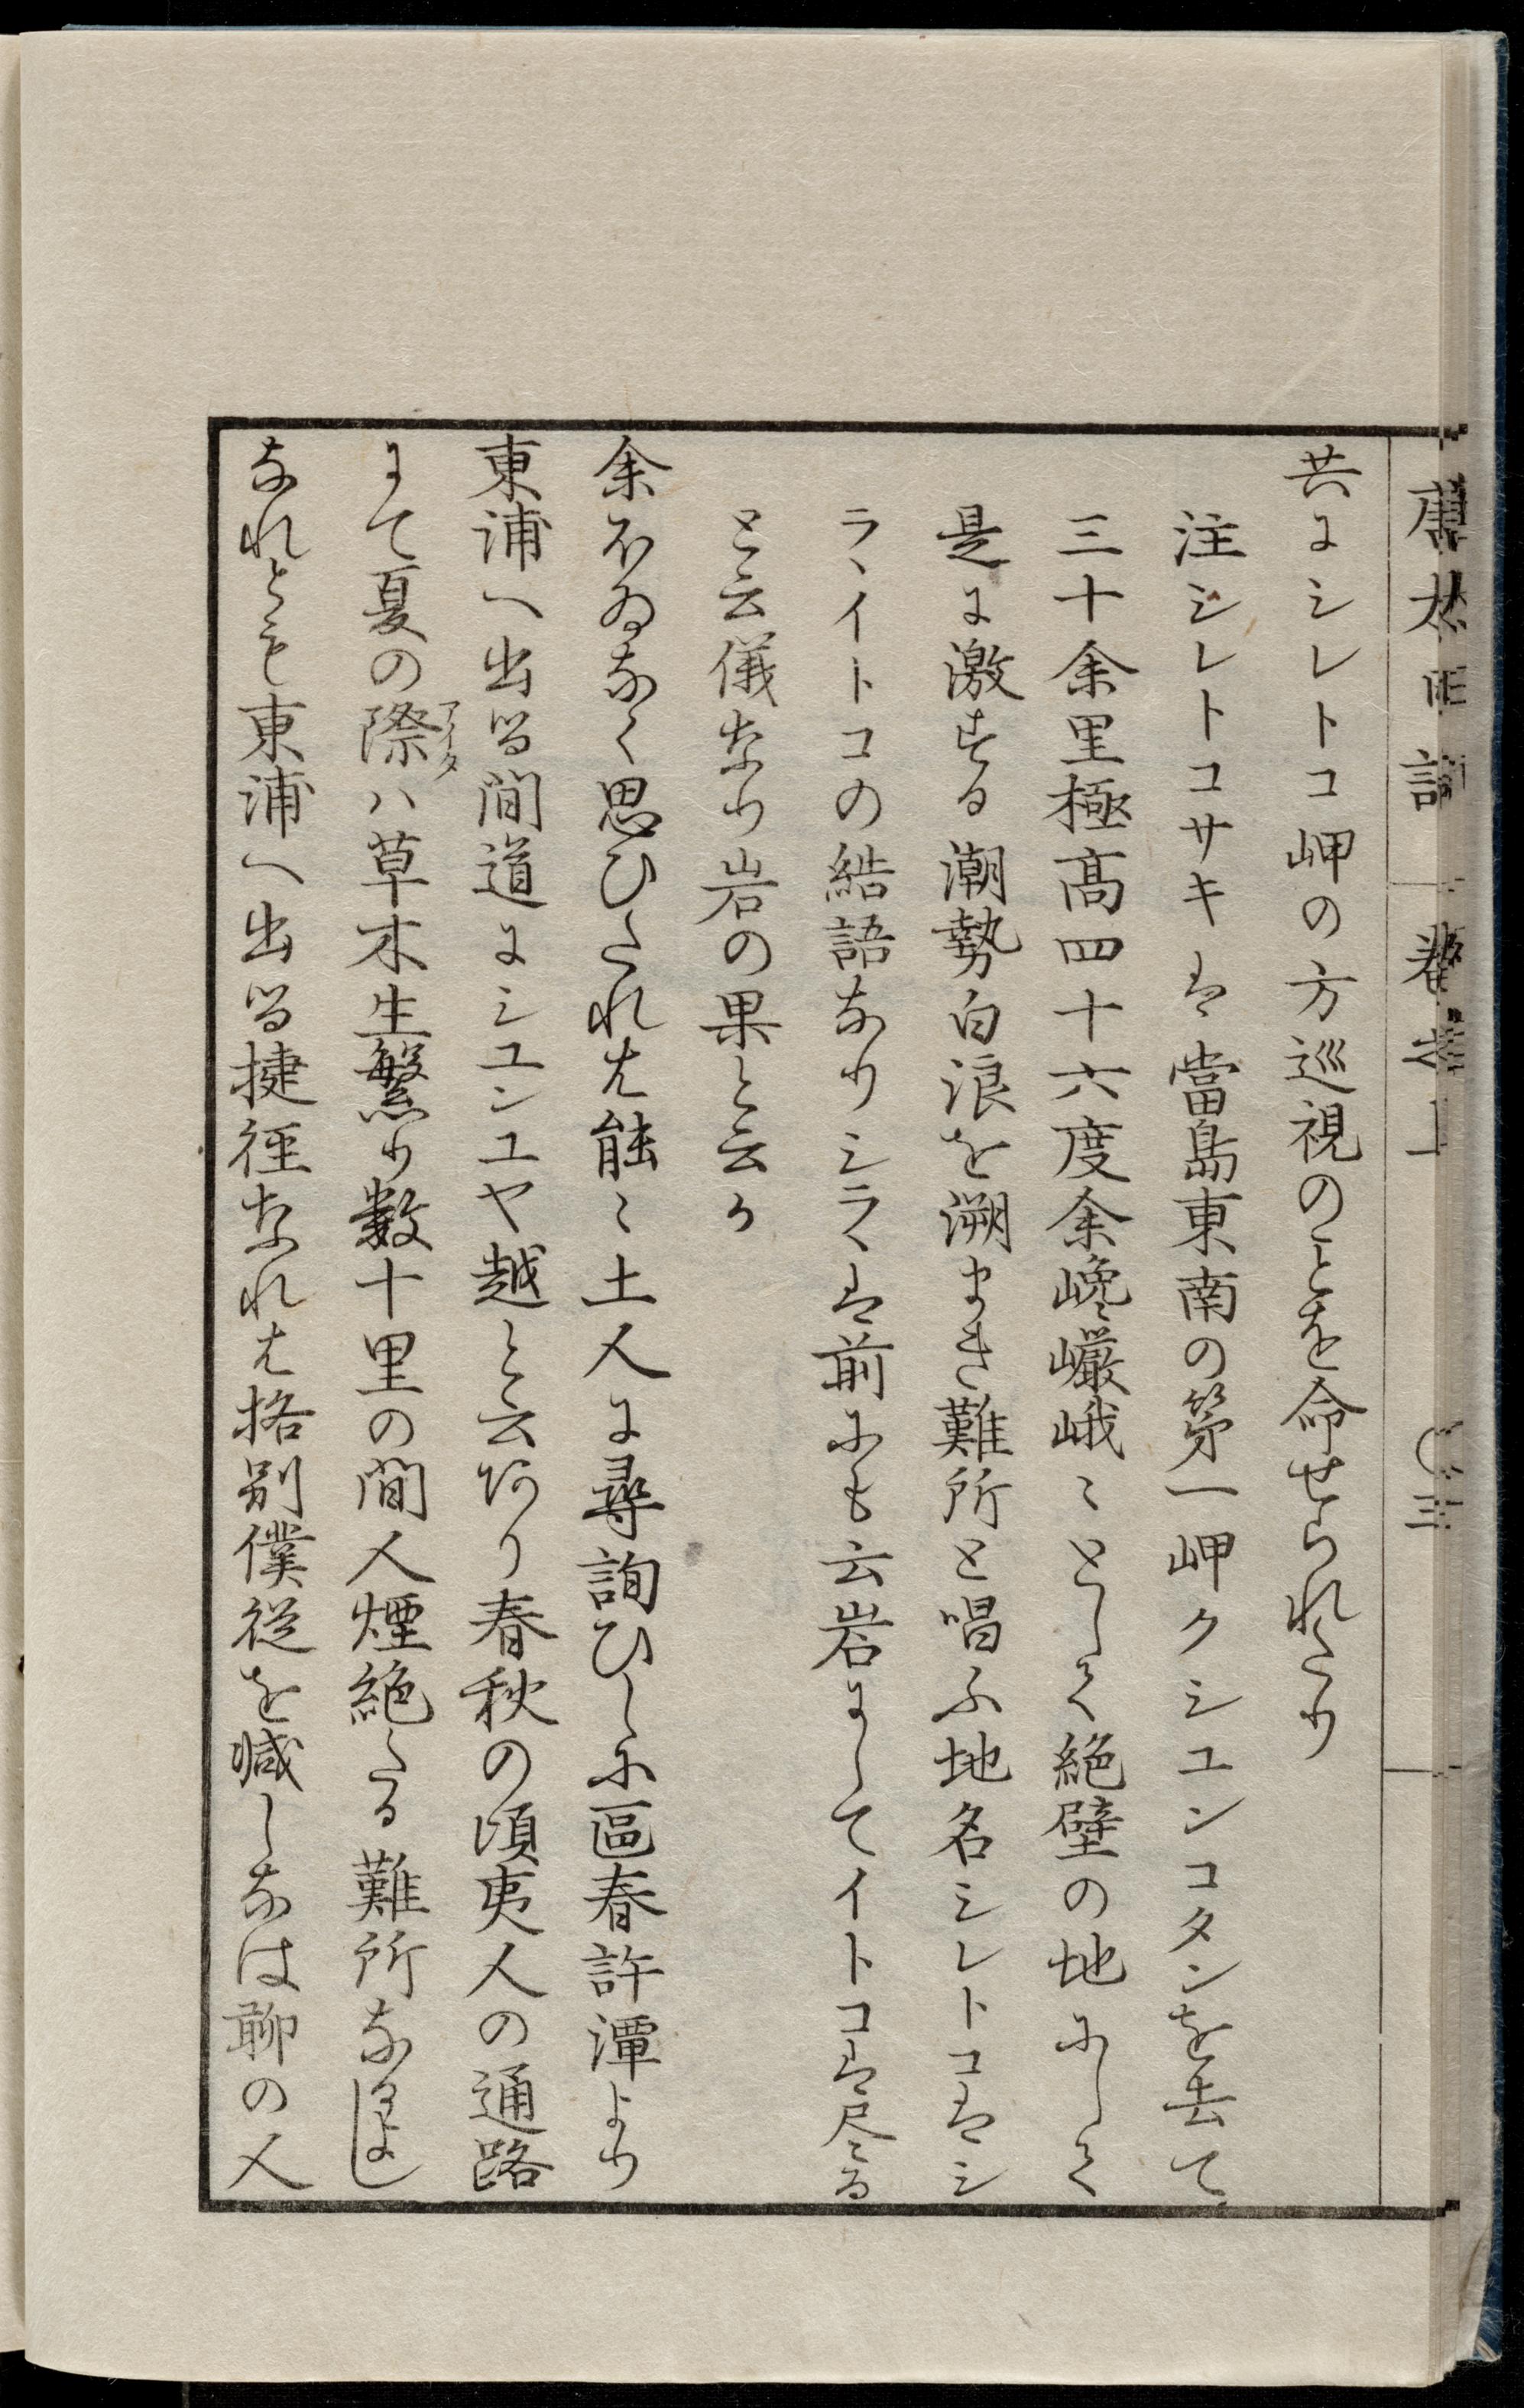 唐太日記 卷之上 〇三
共にシレトコ岬の方巡視のことを命せられたり
注シレトコサキは當島東南の第一岬クシユンコタンを去て
三十余里極髙四十六度余巉巖峨〻として絶壁の地にして
是に激する潮勢白浪を溯まき難所と唱ふ地名シレトコはシ
ラヽイトコの結語なりシラヽは前にも云岩にしてイトコは尽る
と云儀なり岩の果と云か
余ほゐなく思ひたれは能〻土人に尋詢ひしに區春許潭より
東浦へ出る間道にシユンユヤ越と云あり春秋の頃夷人の通路
にて夏の際ハ草木生繁り数十里の間人煙絶たる難所なるよし
アイタ
なれとも東浦へ出る捷徑なれは格別僕從を减しなは聊の人